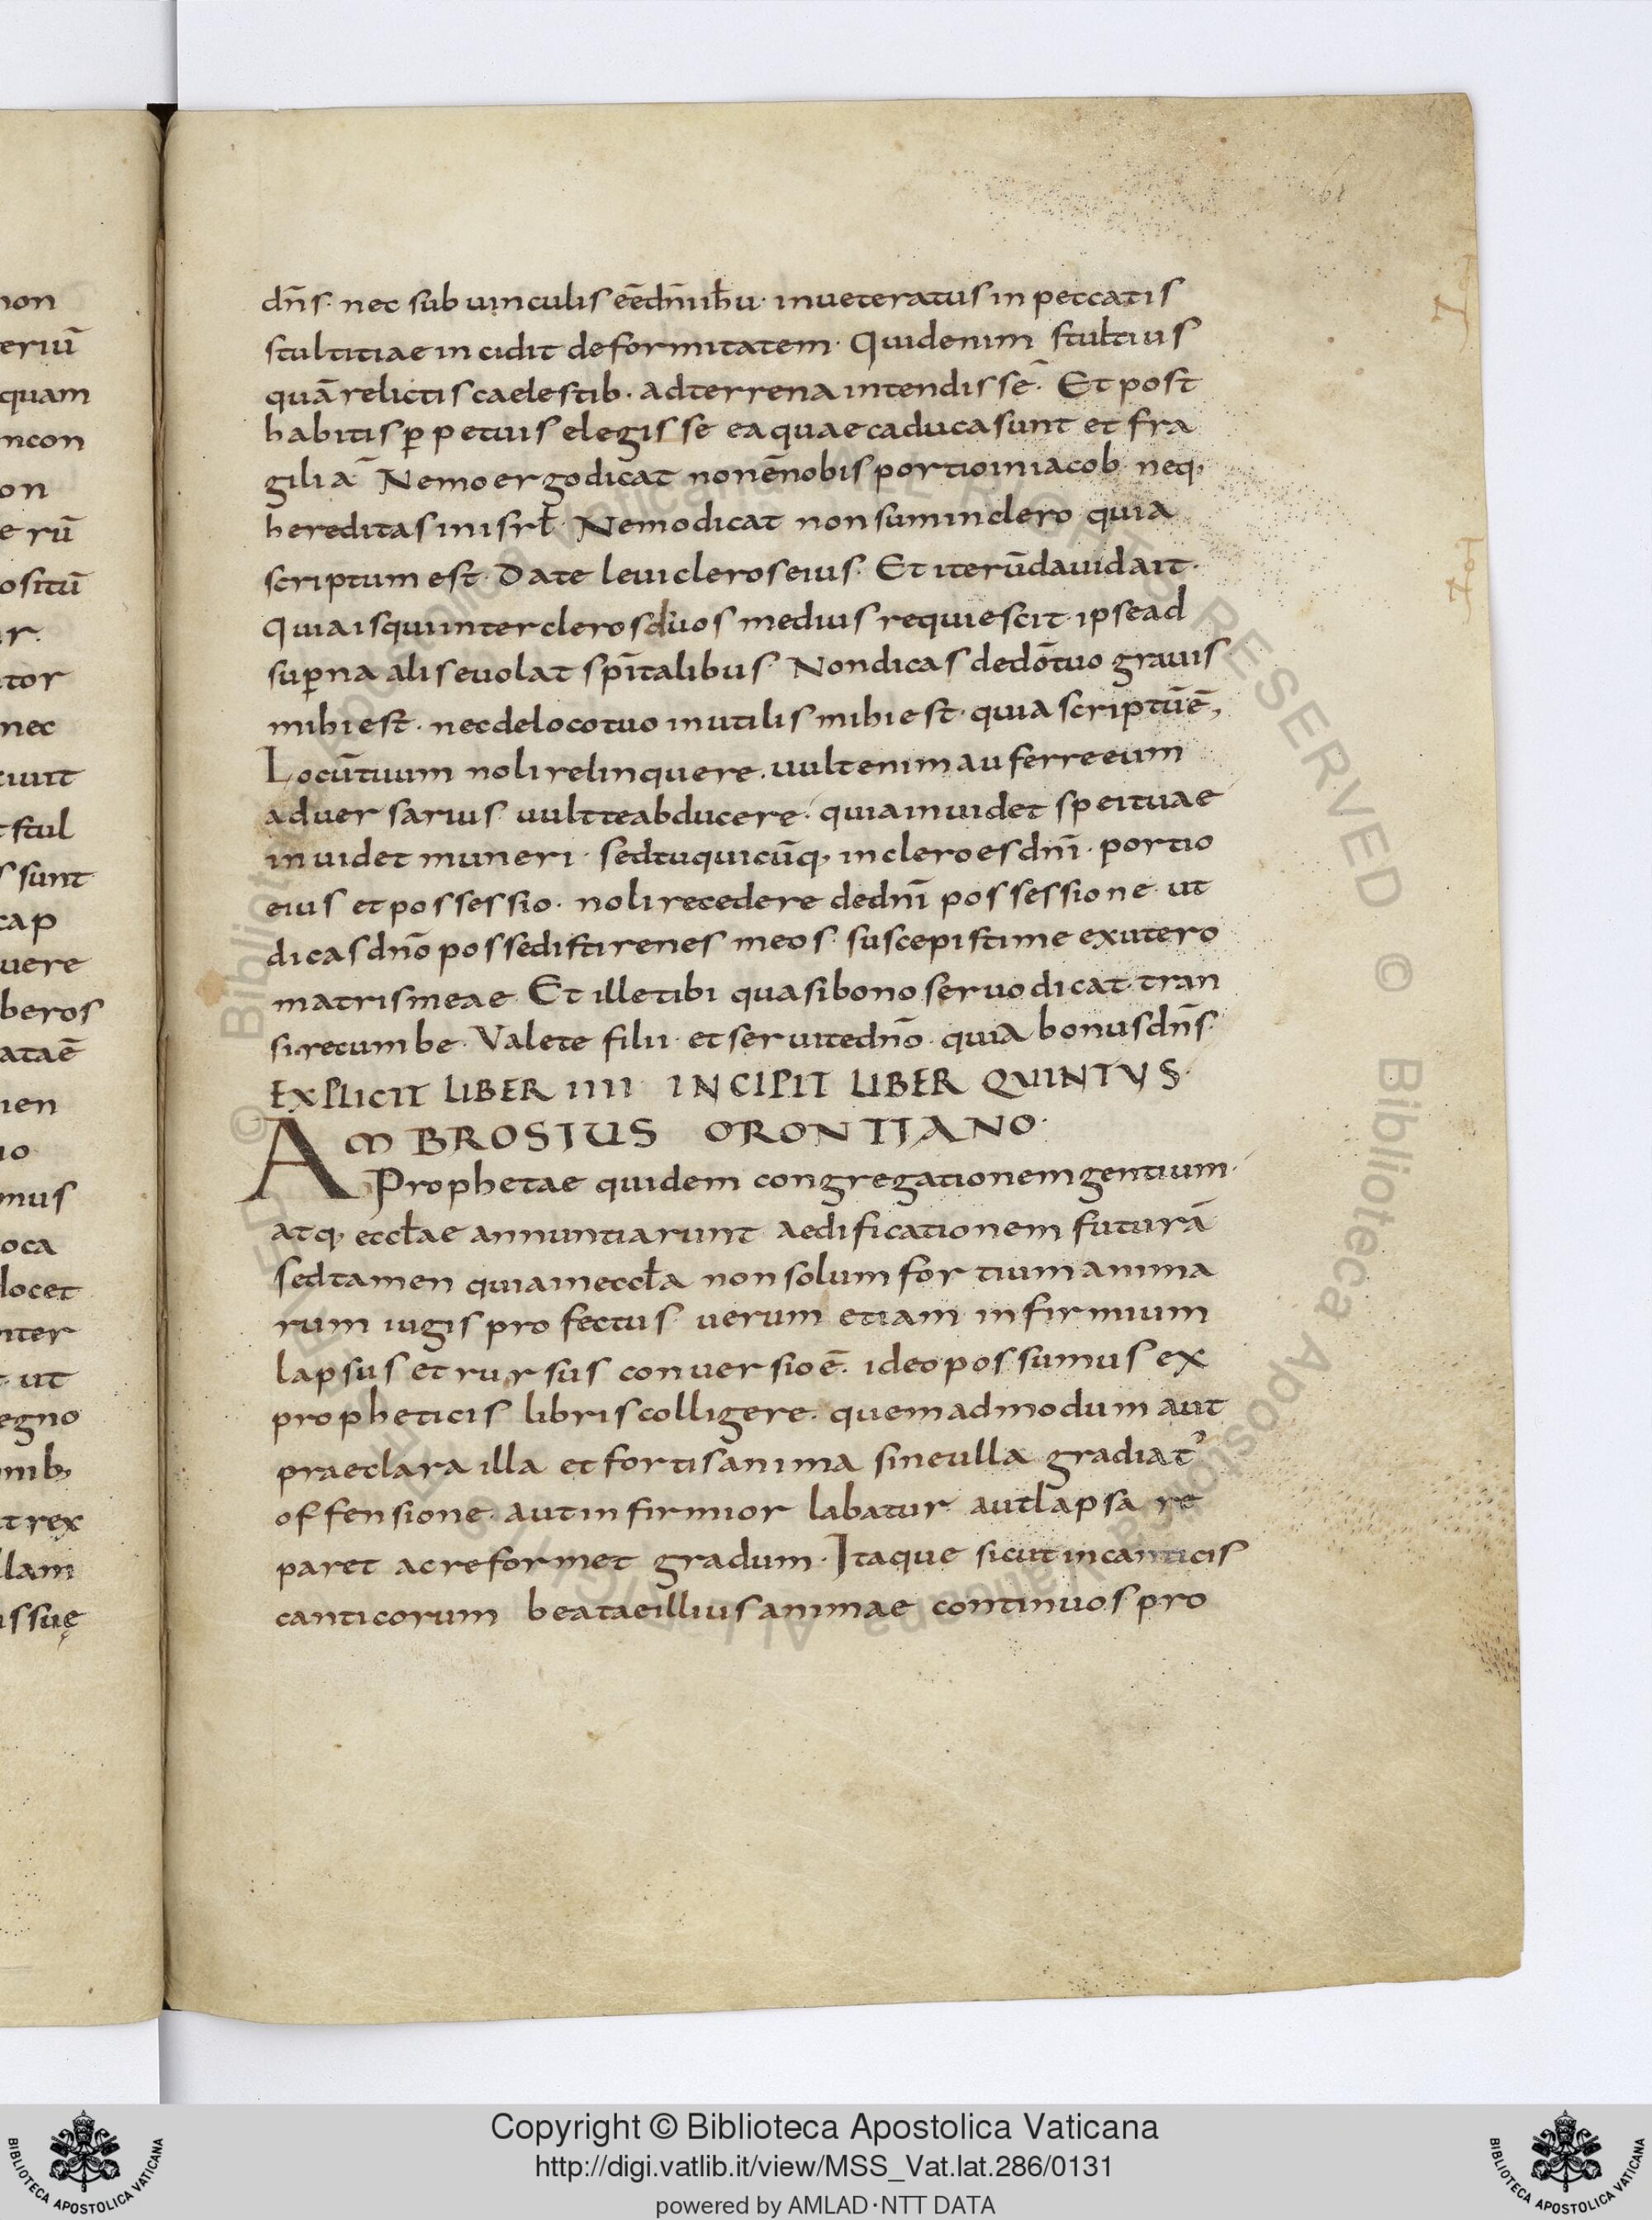 non
eriū
quam
ncon
on
e rū
ositū
ir.
tor
nec
tiuit
t stul
s sunt
cap
uere
beros
ataē
ien
io
mus
oca
docet
nter
t. ut
egno
nib,
t rex
llam
is suę
dn̄s. nec sub uinculis eēdnīuib̄u. inueteratus in peccatis
stultitiae incidit deformitatem. Quidenim stultius
quā relictis caelestib. adterrena intendisse. Et post
habitis ꝑpetuis elegisse ea quae caduca sunt et fra
gilia Nemo ergo dicat non ē nobis portio in iacob neq,
hereditas in isrł. Nemo dicat non sum in clero quia
scriptum est. Date leui cleros eius. Et iterū dauid ait.
Quia is qui inter cleros duos medius requiescit. ipse ad
suꝑna alis euolat spītalibus. Non dicas dedō tuo grauis
mihi est. nec de loco tuo inutilis mihi est. quia scriptū ē,
Locū tuum noli relinquere. uult enim auferre eum
aduersarius. uult te abducere. quia inuidet spei tuae
inuidet muneri. sed tu quicūq, in clero es dnī. portio
eius et possessio. noli recedere de dnī possessione. ut
dicas dnō possedisti renes meos. suscepisti me ex utero
matris meae. Et ille tibi quasi bono seruo dicat. tran
si. recumbe. Valete filii. et seruite dnō. quia bonus dn̄s.
EXPLICIT LIBER IIII INCIPIT LIBER QUINTUS.
AMBROSIUS ORONTIANO.
Prophetae quidem congregationem gentium.
atq, eccłae annuntiarunt aedificationem futurā
sed tamen quia in eccła non solum fortium anima
rum iugis profectus. uerum etiam infirmium
lapsus et rursus conuersio ē. ideo possumus ex
propheticis libris colligere. quemadmodum aut
praeclara illa et fortis anima sine ulla gradiat᾽
offensione. aut infirmior labatur. aut lapsa re
paret ac reformet gradum. Itaque sicut in canticis
canticorum beatae illius animae continuos pro
Copyright © Biblioteca Apostolica Vaticana
http://digi.vatlib.it/view/MSS_Vat.lat.286/0131
powered by AMLAD·NTT DATA
BIBLIOTECA APOSTOLICA VATICANA
BIBLIOTECA APOSTOLICA VATICANA